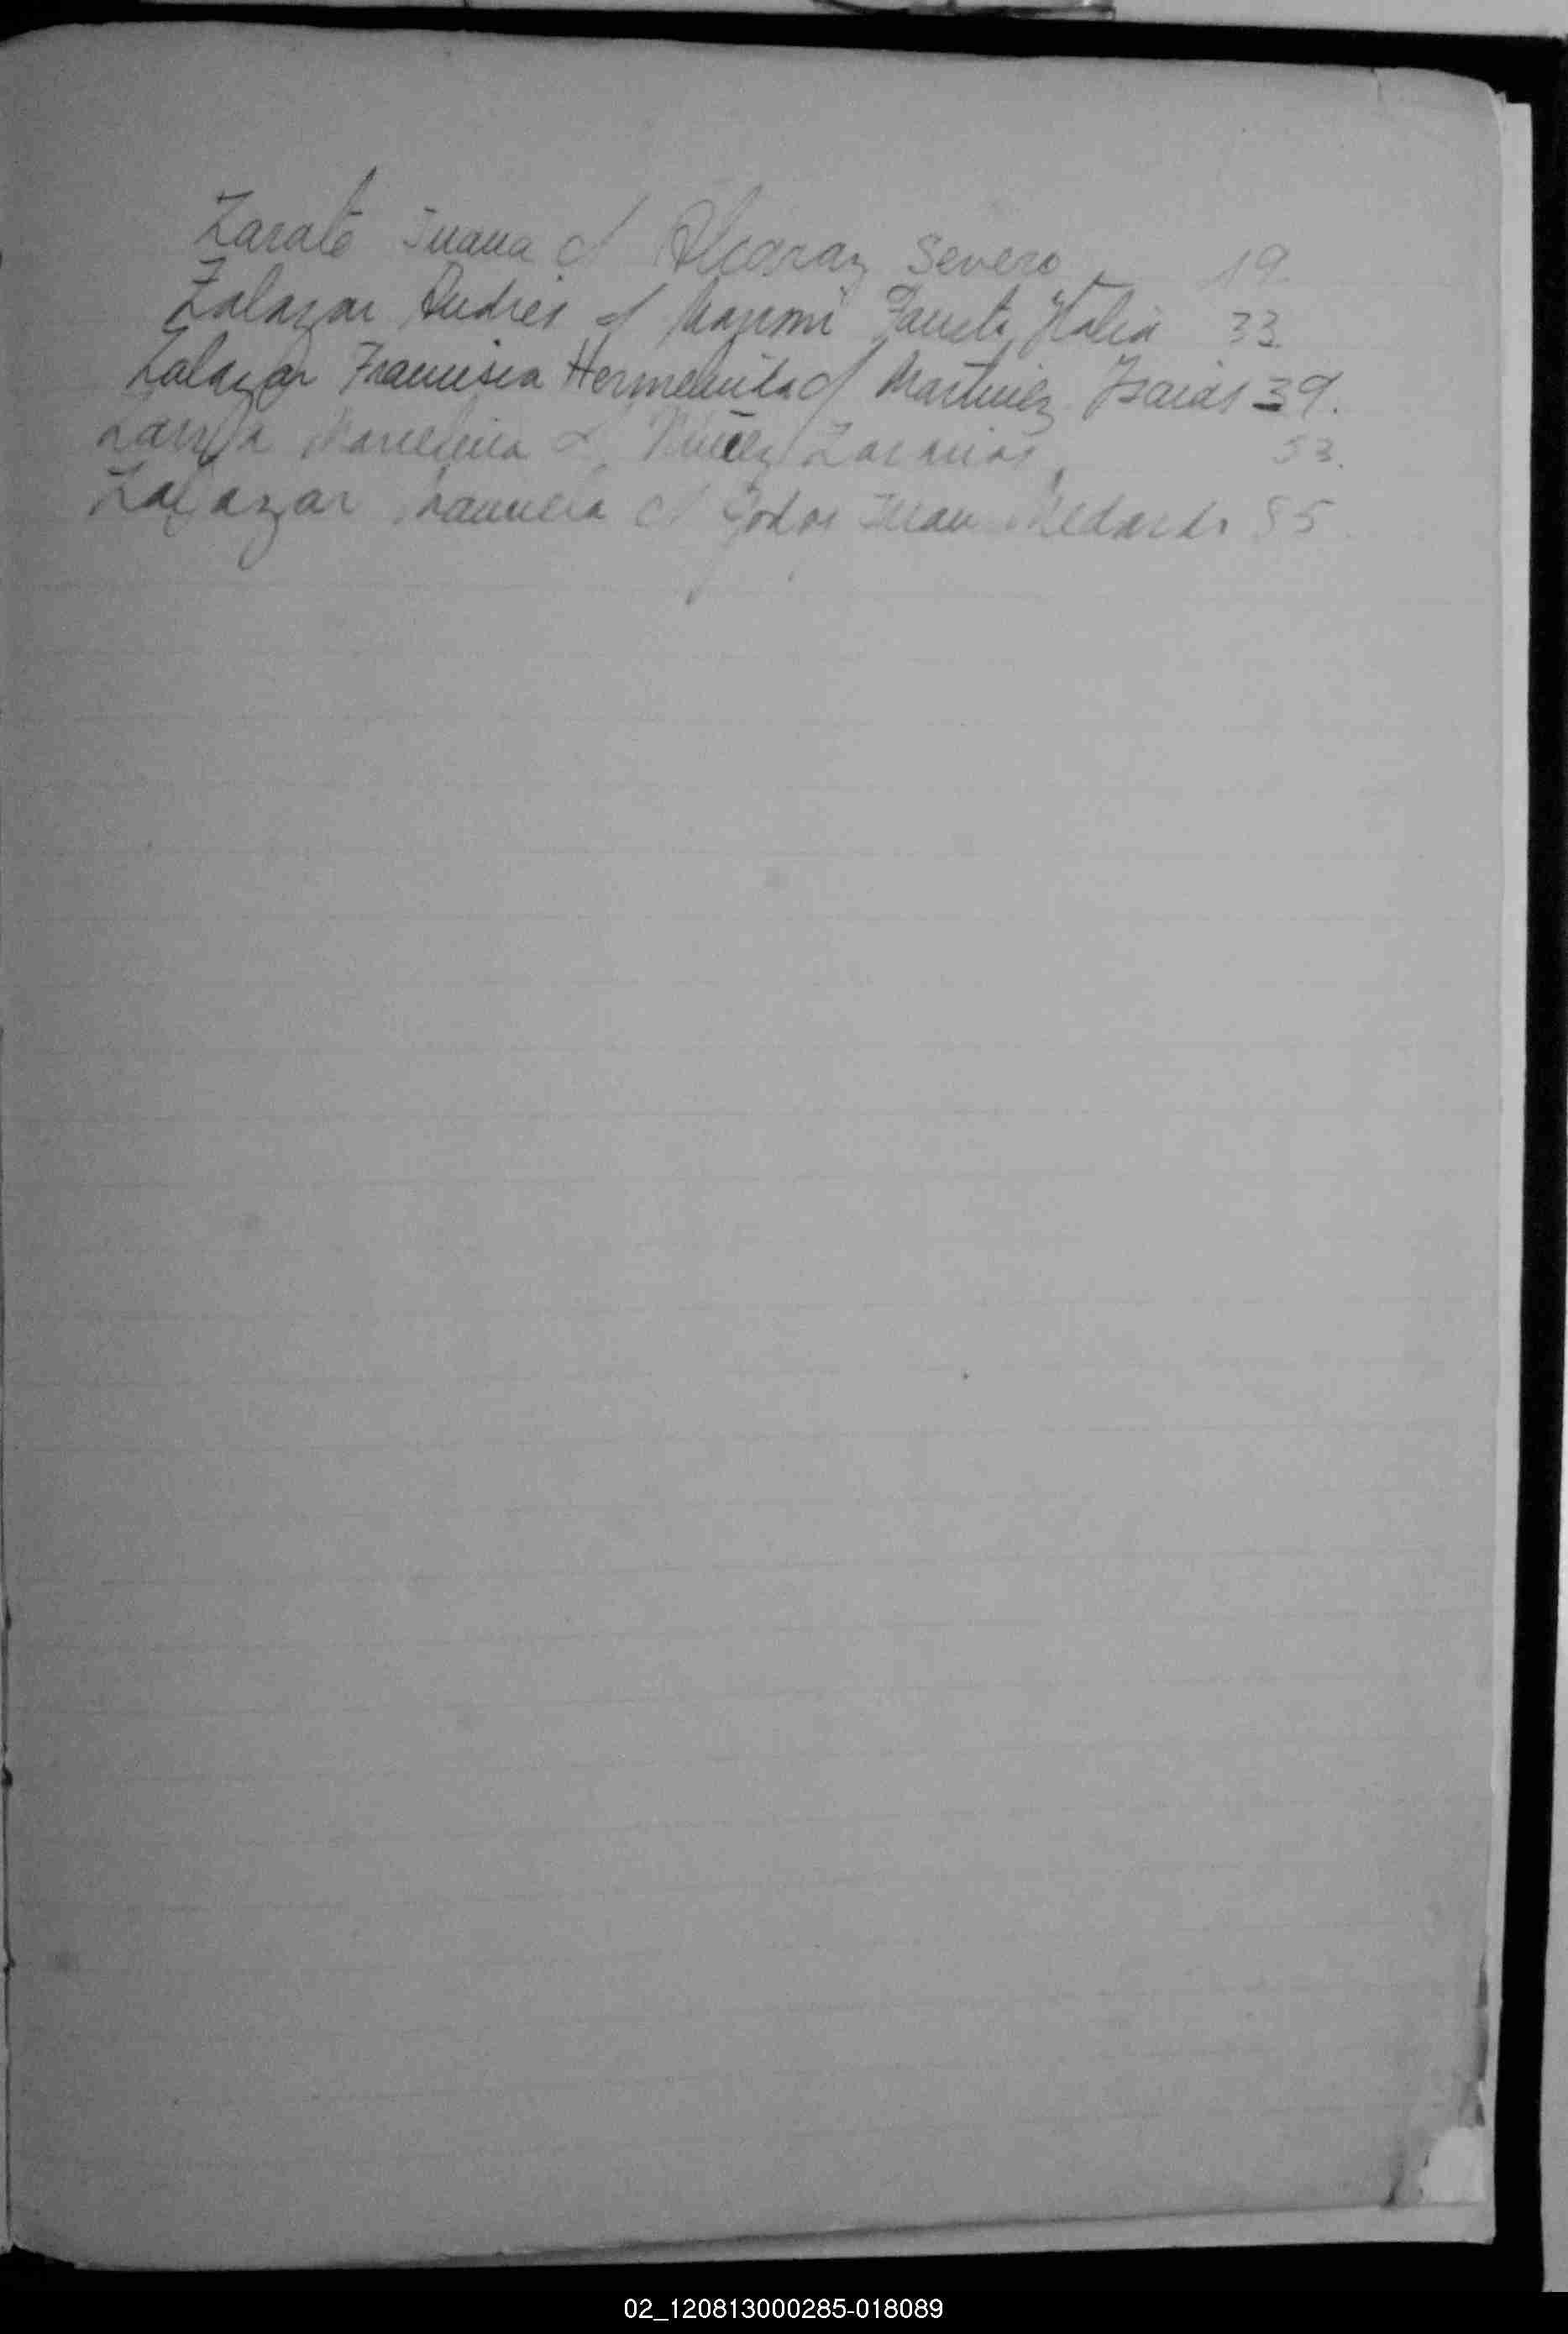 Zarate Juana c/ Alcaraz Severo 19
Zalazar Andrés c/ Fausta Italia 33
Zalazar Francisca c/ Martinez Isaias 39.
Marcelina c/ Nuñez Zacarias 53.
Zalazar Manuela c/ Godoi Juan Medardo 55
02_120813000285-018089